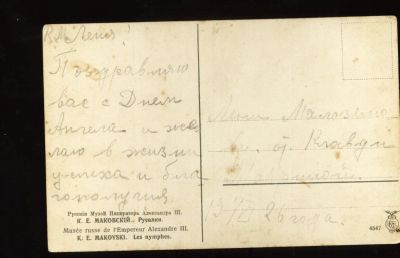 В. М. Леня!
Поздравляю
вас с Днем
Ангела и же-
лаю в жизни
успеха и бла-
гополучия
от Клавди
1926 года.
Русскій Музей Императора Александра III.
К. Е. МАКОВСКІЙ. Русалки.
Musée russe de l'Empereur Alexandre III.
K. E. MAKOVSKI. Les nymphes.
4347